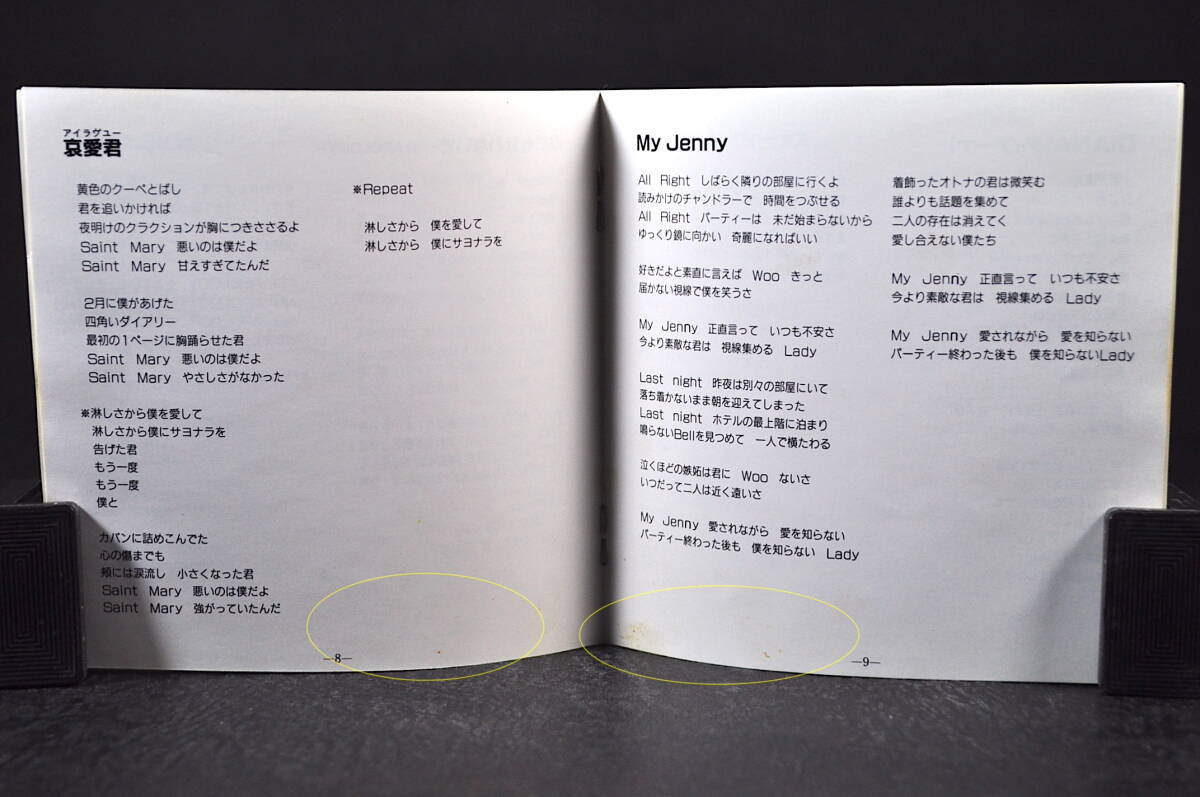 アイラヴユー
哀愛君
黄色のクーペとばし
君を追いかければ
夜明けのクラクションが胸につきささるよ
Saint Mary 悪いのは僕だよ
Saint Mary 甘えすぎてたんだ
2月に僕があげた
四角いダイアリー
最初の1ページに胸踊らせた君
Saint Mary 悪いのは僕だよ
Saint Mary やさしさがなかった
※淋しさから僕を愛して
淋しさから僕にサヨナラを
告げた君
もう一度
もう一度
僕と
カバンに詰めこんでた
心の傷までも
頬には涙流し 小さくなった君
Saint Mary 悪いのは僕だよ
Saint Mary 強がっていたんだ
※Repeat
淋しさから 僕を愛して
淋しさから 僕にサヨナラを
—8—
My Jenny
All Right しばらく隣りの部屋に行くよ
読みかけのチャンドラーで 時間をつぶせる
All Right パーティーは 未だ始まらないから
ゆっくり鏡に向かい 奇麗になればいい
好きだよと素直に言えば Woo きっと
届かない視線で僕を笑うさ
My Jenny 正直言って いつも不安さ
今より素敵な君は 視線集める Lady
Last night 昨夜は別々の部屋にいて
落ち着かないまま朝を迎えてしまった
Last night ホテルの最上階に泊まり
鳴らないBellを見つめて 一人で横たわる
泣くほどの嫉妬は君に Woo ないさ
いつだって二人は近く遠いさ
My Jenny 愛されながら 愛を知らない
パーティー終わった後も 僕を知らない Lady
着飾ったオトナの君は微笑む
誰よりも話題を集めて
二人の存在は消えてく
愛し合えない僕たち
My Jenny 正直言って いつも不安さ
今より素敵な君は 視線集める Lady
My Jenny 愛されながら 愛を知らない
パーティー終わった後も 僕を知らないLady
—9—